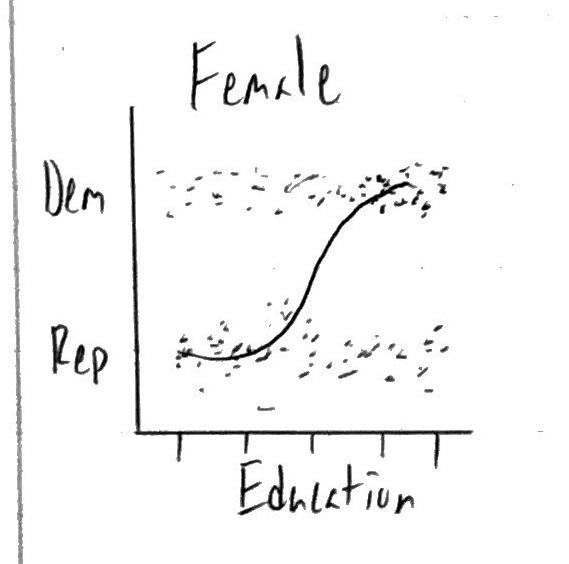 Female
Dem
Rep
Education